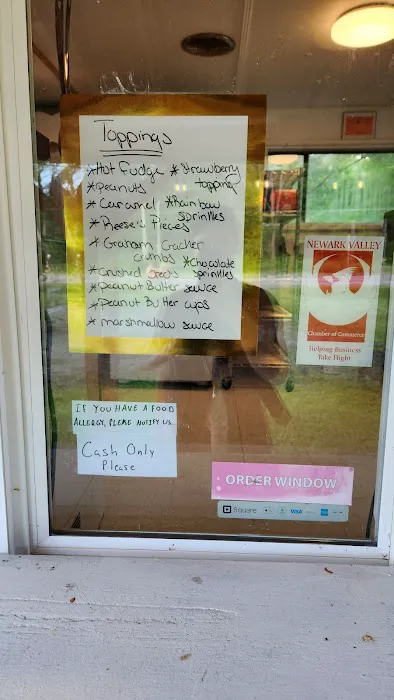 Toppings
* Hot Fudge * Strawberry
topping
* Peanuts
* Caramel * Rainbow
sprinkles
* Reese's Pieces
* Graham Cracker
crumbs * Chocolate
sprinkles
* Crushed Oreos
* Peanut Butter sauce
* Peanut Butter cups
* marshmallow sauce
NEWARK VALLEY
Chamber of Commerce
Helping Business
Take Flight
IF YOU HAVE A FOOD
ALLERGY, PLEASE NOTIFY US.
Cash Only
Please
ORDER WINDOW
Square VISA